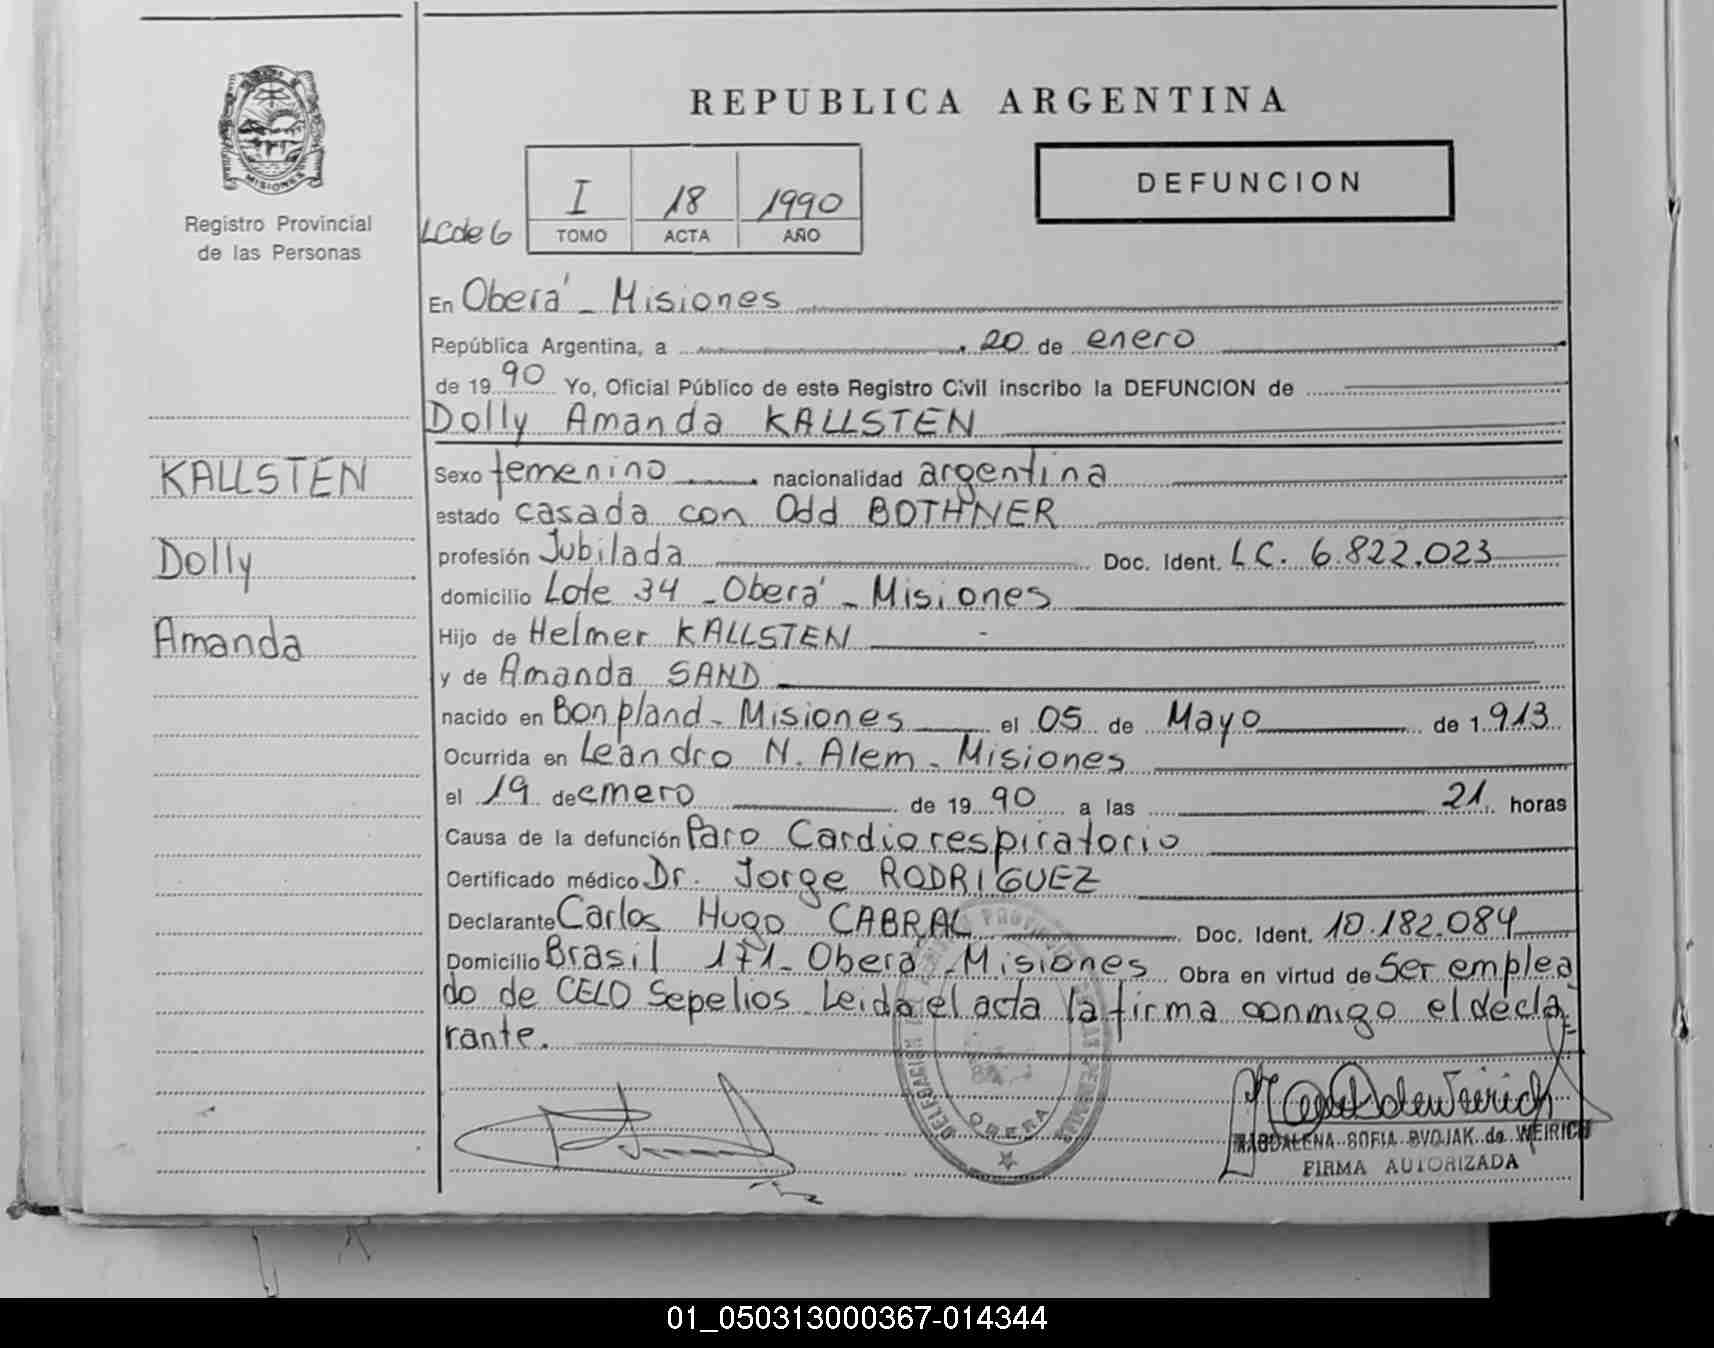 REPUBLICA ARGENTINA
MISIONES
Registro Provincial
de las Personas
I 18 1990
TOMO ACTA AÑO
DEFUNCION
LC de 6
En Oberá - Misiones
República Argentina, a 20 de enero
de 1990 Yo, Oficial Público de este Registro Civil inscribo la DEFUNCION de
Dolly Amanda KALLSTEN
KALLSTEN
Dolly
Amanda
Sexo femenino nacionalidad argentina
estado casada con Odd BOTHNER
profesión Jubilada Doc. Ident. LC. 6.822.023
domicilio Lote 34 - Oberá - Misiones
Hijo de Helmer KALLSTEN
y de Amanda SAND
nacido en Bonpland - Misiones el 05 de Mayo de 1.913
Ocurrida en Leandro N. Alem - Misiones
el 19 de enero de 1990 a las 21 horas
Causa de la defunción Paro Cardiorespiratorio
Certificado médico Dr. Jorge RODRIGUEZ
Declarante Carlos Hugo CABRAL Doc. Ident. 10.182.084
Domicilio Brasil 171 - Oberá - Misiones Obra en virtud de Ser emplea
do de CELO Sepelios. Leida el acta la firma conmigo el decla-
rante.
OBERA
MAGDALENA SOFIA BVOJAK de WEIRICH
FIRMA AUTORIZADA
01_050313000367-014344